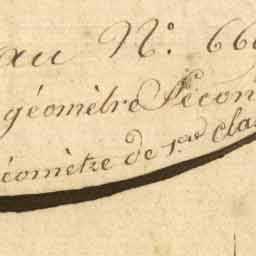 au N.º 66
géomètre Secon
éomètre de 1.ere clas